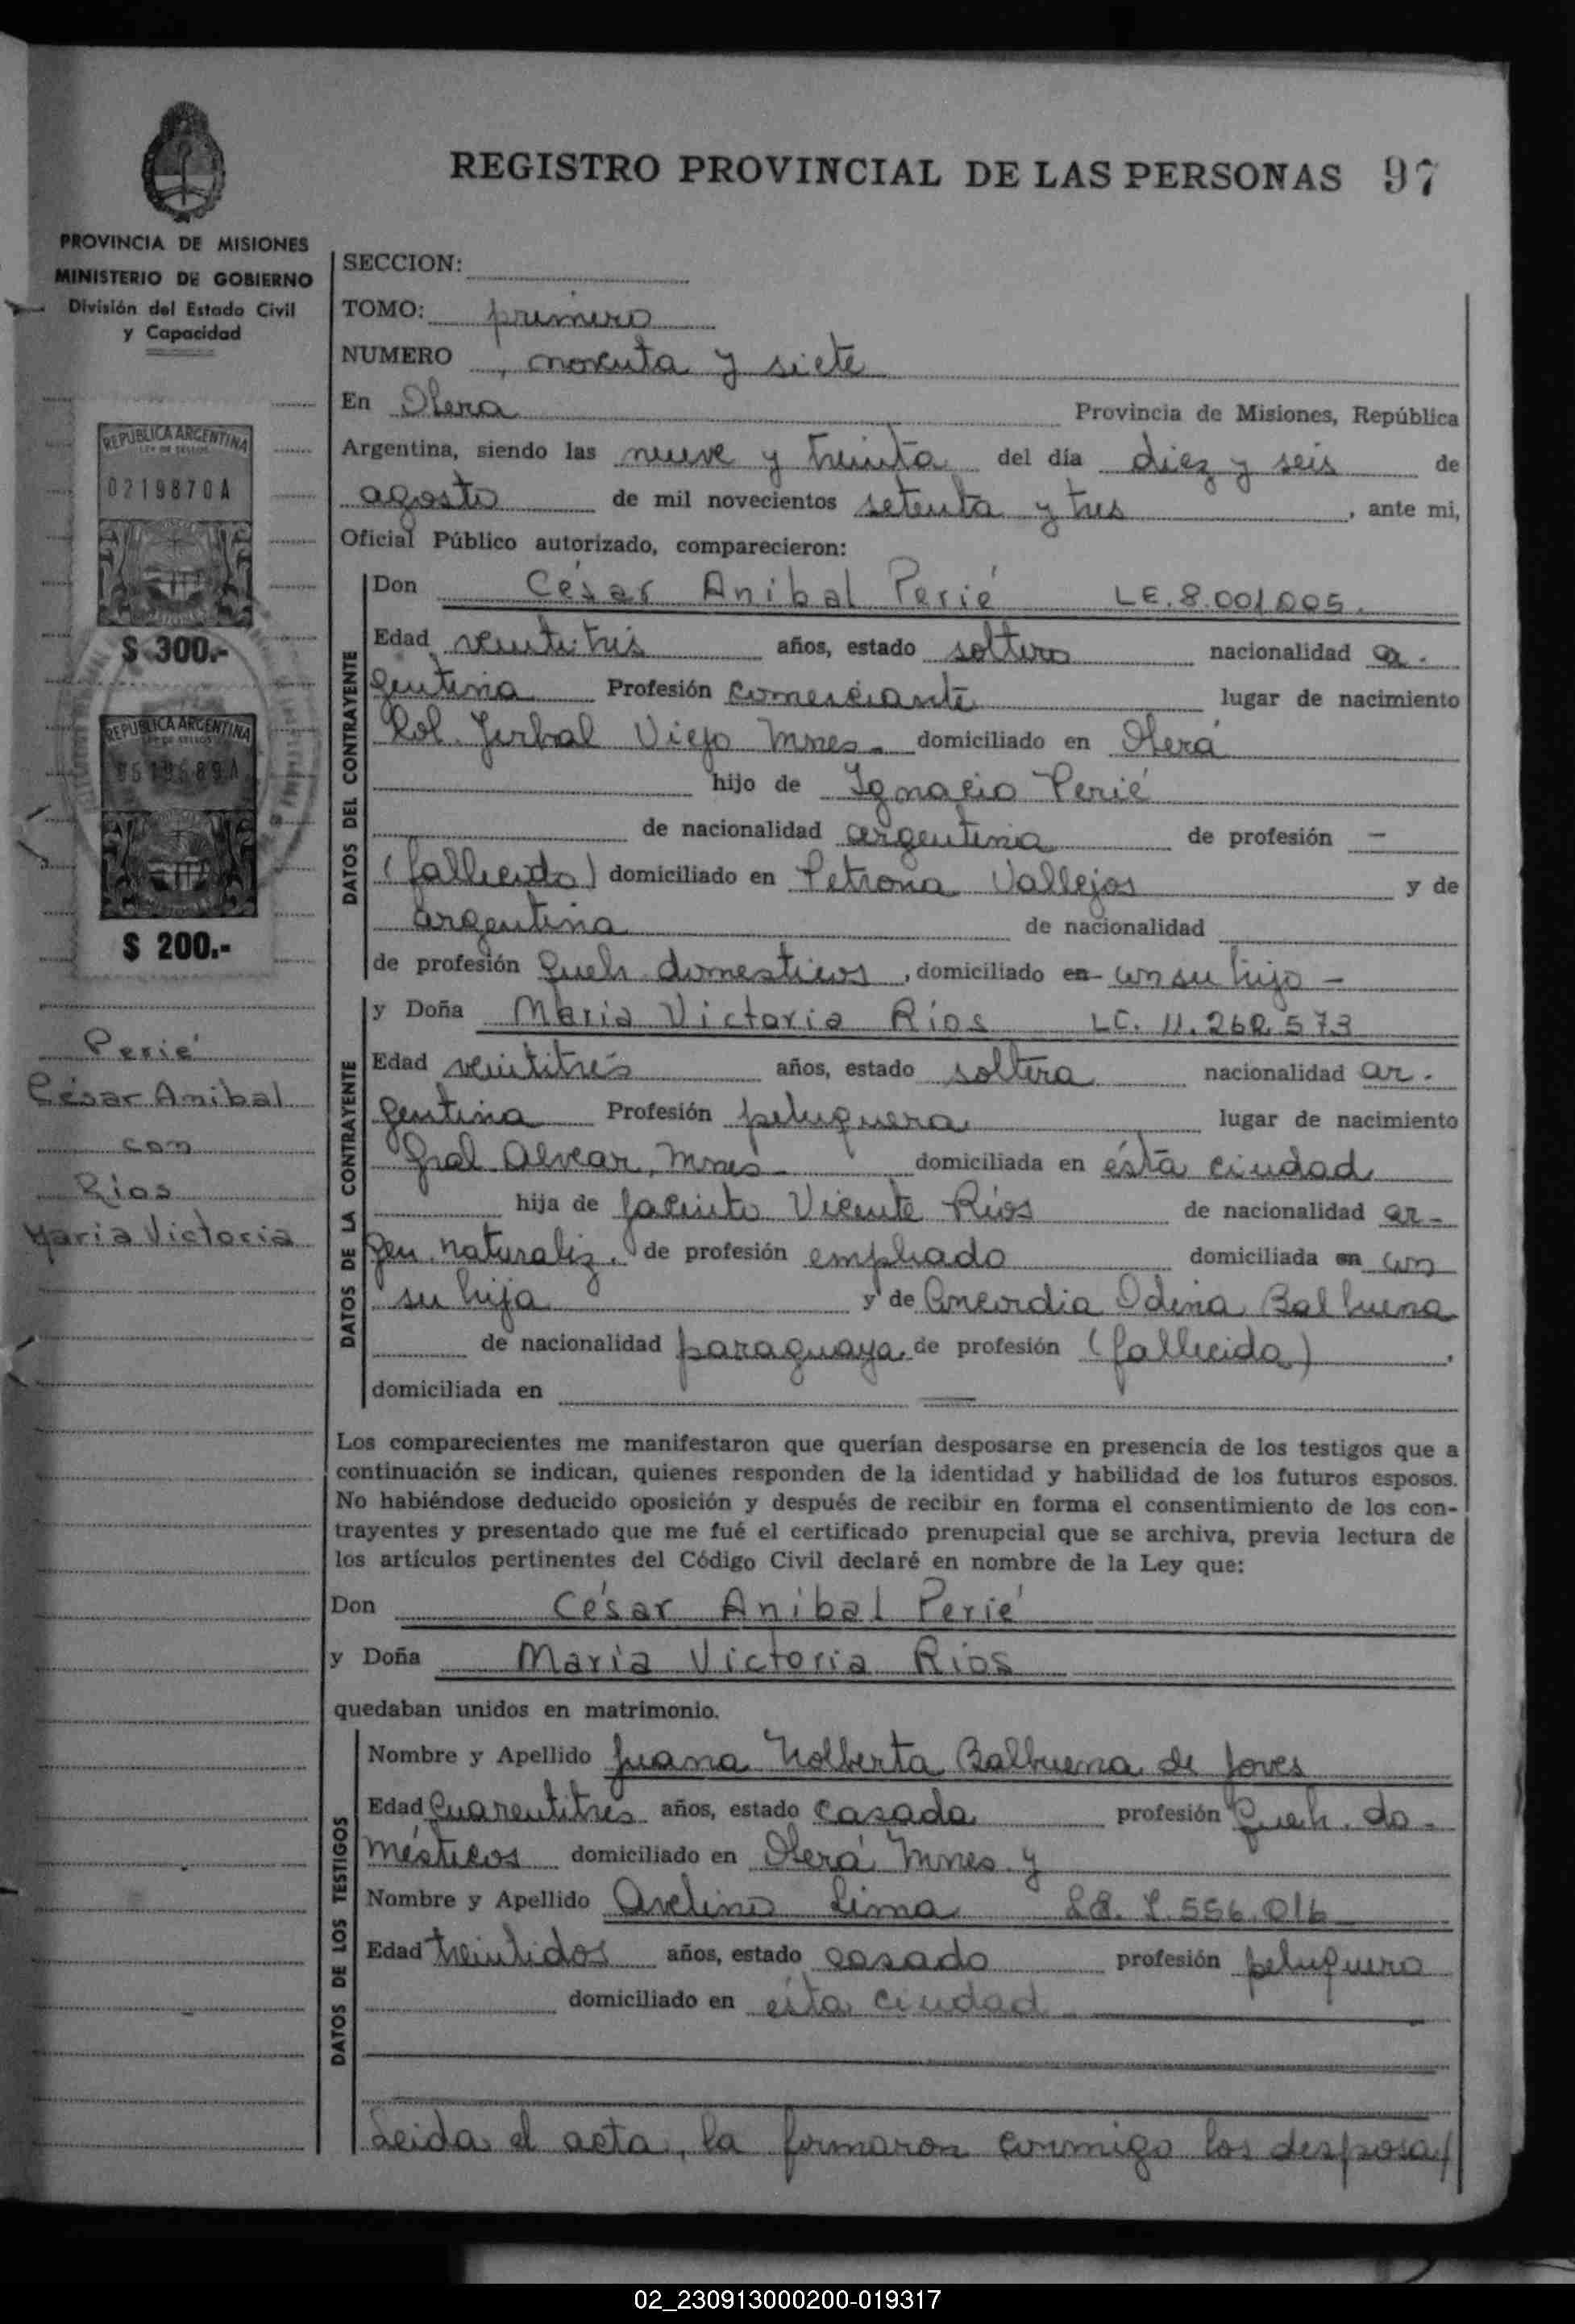 REGISTRO PROVINCIAL DE LAS PERSONAS 97
PROVINCIA DE MISIONES
MINISTERIO DE GOBIERNO
División del Estado Civil
y Capacidad
REPUBLICA ARGENTINA
LEY DE SELLOS
0219870A
$ 300.-
REPUBLICA ARGENTINA
$ 200.-
Perié
César Anibal
con
Rios
Maria Victoria
SECCION:
TOMO: primero
NUMERO noventa y siete
En Obera Provincia de Misiones, República
Argentina, siendo las nueve y treinta del día diez y seis de
agosto de mil novecientos setenta y tres, ante mi,
Oficial Público autorizado, comparecieron:
DATOS DEL CONTRAYENTE
Don César Anibal Perié LE. 8.001.005.
Edad veintitrés años, estado soltero nacionalidad ar-
gentina Profesión comerciante lugar de nacimiento
Col. Yerbal Viejo Mnes. domiciliado en Oberá
hijo de Ignacio Perié
de nacionalidad argentina de profesión —
(fallecido) domiciliado en Petrona Vallejos y de
argentina de nacionalidad
de profesión Queh. domesticos, domiciliado en con su hijo -
DATOS DE LA CONTRAYENTE
y Doña Maria Victoria Rios LC. 11.260.573
Edad veintitrés años, estado soltera nacionalidad ar-
gentina Profesión peluquera lugar de nacimiento
Gral Alvear, Mnes- domiciliada en ésta ciudad
hija de Jacinto Vicente Rios de nacionalidad ar-
gen. naturaliz. de profesión empleado domiciliada en con
su hija y de Concordia Odina Balbuena
de nacionalidad paraguaya de profesión (fallecida).
domiciliada en —
Los comparecientes me manifestaron que querían desposarse en presencia de los testigos que a
continuación se indican, quienes responden de la identidad y habilidad de los futuros esposos.
No habiéndose deducido oposición y después de recibir en forma el consentimiento de los con-
trayentes y presentado que me fué el certificado prenupcial que se archiva, previa lectura de
los artículos pertinentes del Código Civil declaré en nombre de la Ley que:
Don César Anibal Perié
y Doña Maria Victoria Rios
quedaban unidos en matrimonio.
DATOS DE LOS TESTIGOS
Nombre y Apellido Juana Nolberta Balbuena de Joves
Edad Cuarentitres años, estado casada profesión Queh. do-
mésticos domiciliado en Oberá Mnes y
Nombre y Apellido Avelino Lima 556.016
Edad treintidos años, estado casado profesión peluquero
domiciliado en esta ciudad
Leida el acta, la firmaron conmigo los desposa/
02_230913000200-019317